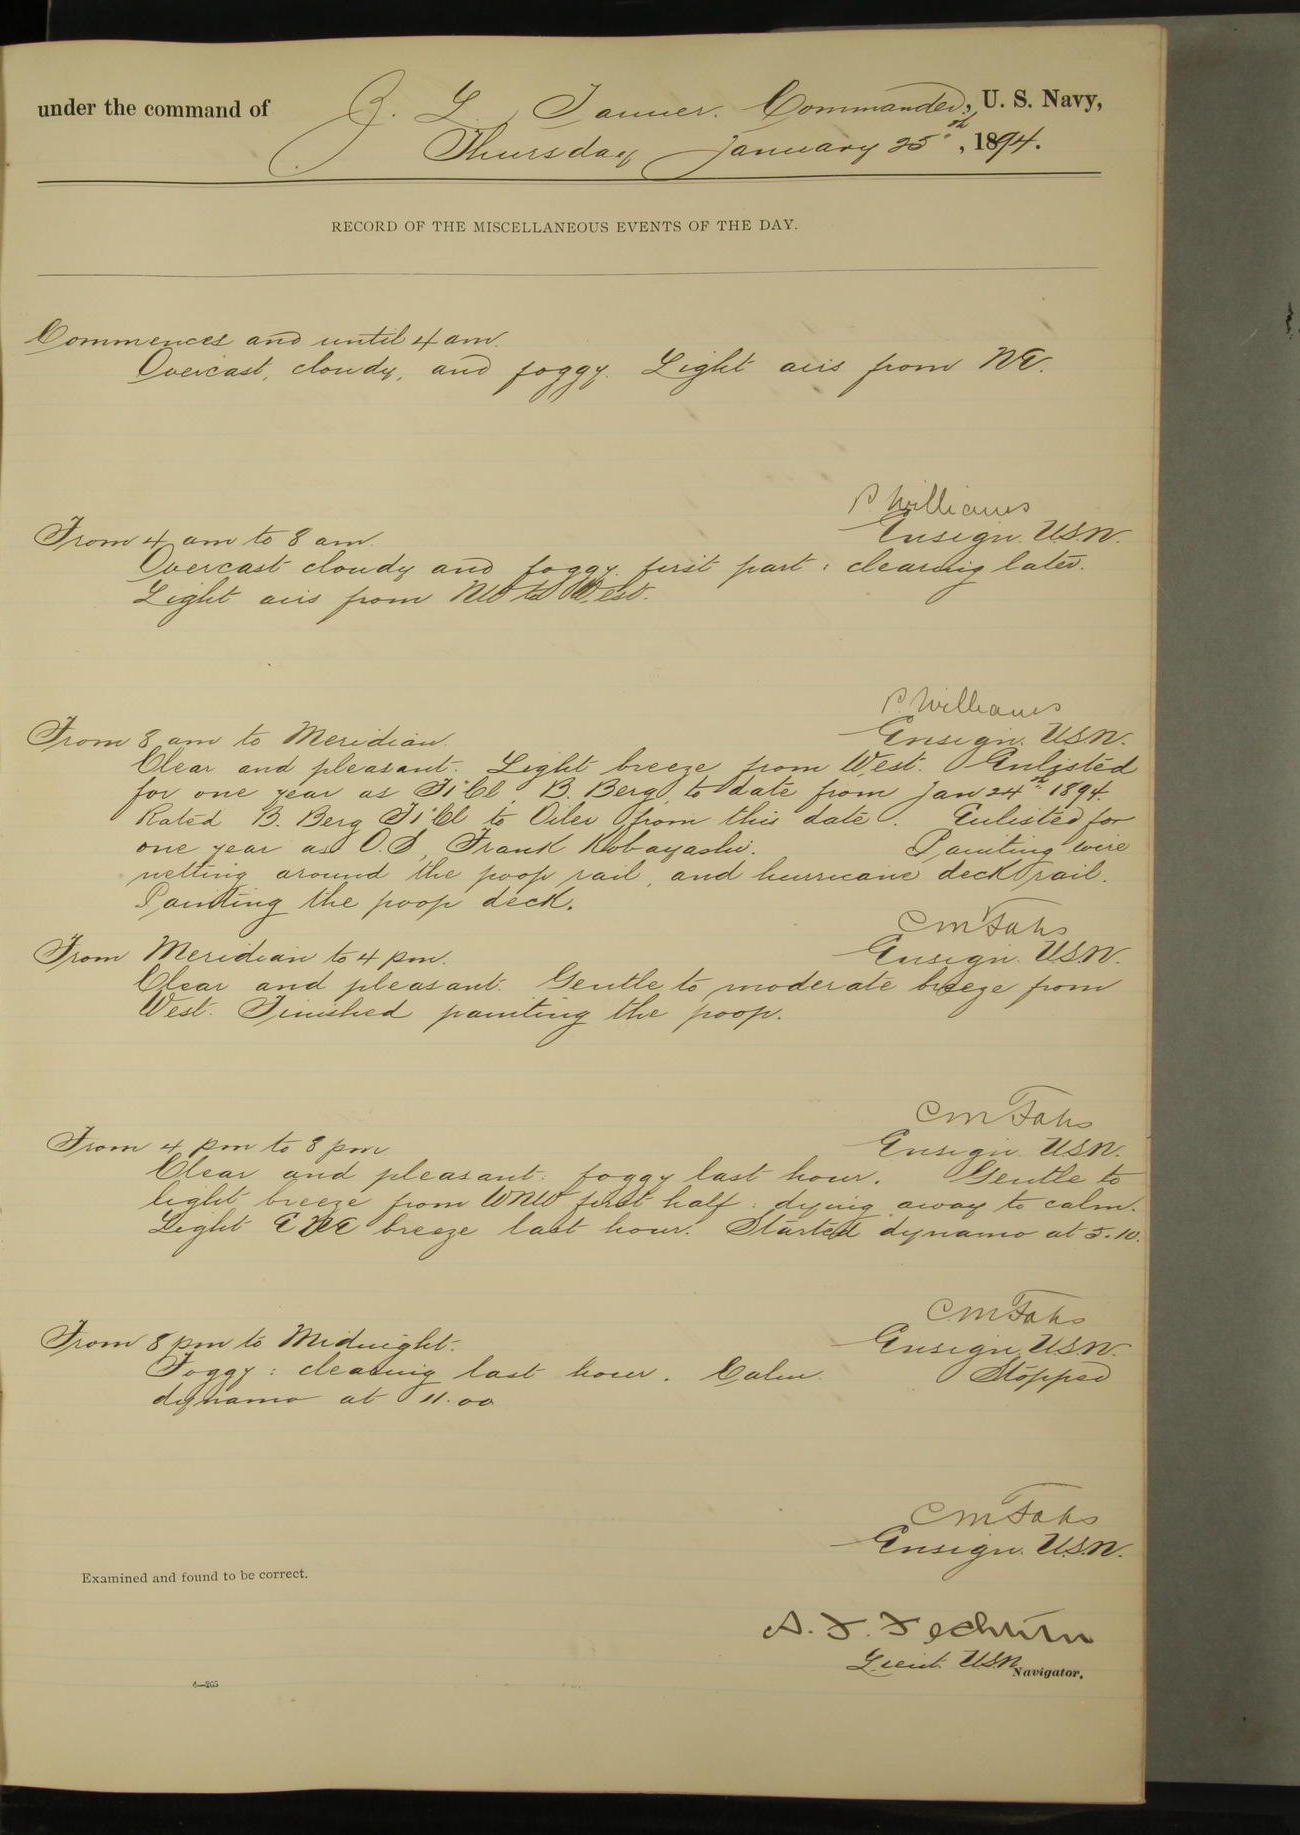 under the command of Z. L. Tanner. Commander, U. S. Navy,
Thursday January 25th, 1894.
RECORD OF THE MISCELLANEOUS EVENTS OF THE DAY.
Commences and until 4 am.
Overcast, cloudy, and foggy. Light airs from NE.
P Williams
Ensign. USN.
From 4 am to 8 am.
Overcast cloudy and foggy first part: clearing later.
Light airs from NW to West.
P. Williams
Ensign. USN.
From 8 am to Meridian.
Clear and pleasant. Light breeze from West. Enlisted
for one year as F. 1 Cl, B. Berg, to date from Jan 24th 1894.
Rated B. Berg F. 1 Cl to Oiler from this date. Enlisted for
one year as O.S, Frank Kobayashi. Painting wire
netting around the poop rail, and hurricane deck rail.
Painting the poop deck.
CM Fahs
Ensign. USN.
From Meridian to 4 pm.
Clear and pleasant. Gentle to moderate breeze from
West. Finished painting the poop.
CM Fahs
Ensign USN.
From 4 pm to 8 pm
Clear and pleasant: foggy last hour. Gentle to
light breeze from WNW first half: dying away to calm.
Light ENE breeze last hour. Started dynamo at 5.10.
CM Fahs
Ensign. USN.
From 8 pm to Midnight.
Foggy: clearing last hour. Calm. Stopped
dynamo at 11.00
CM Fahs
Ensign. USN.
Examined and found to be correct.
A. F. Fechteler
Lieut. USN Navigator.